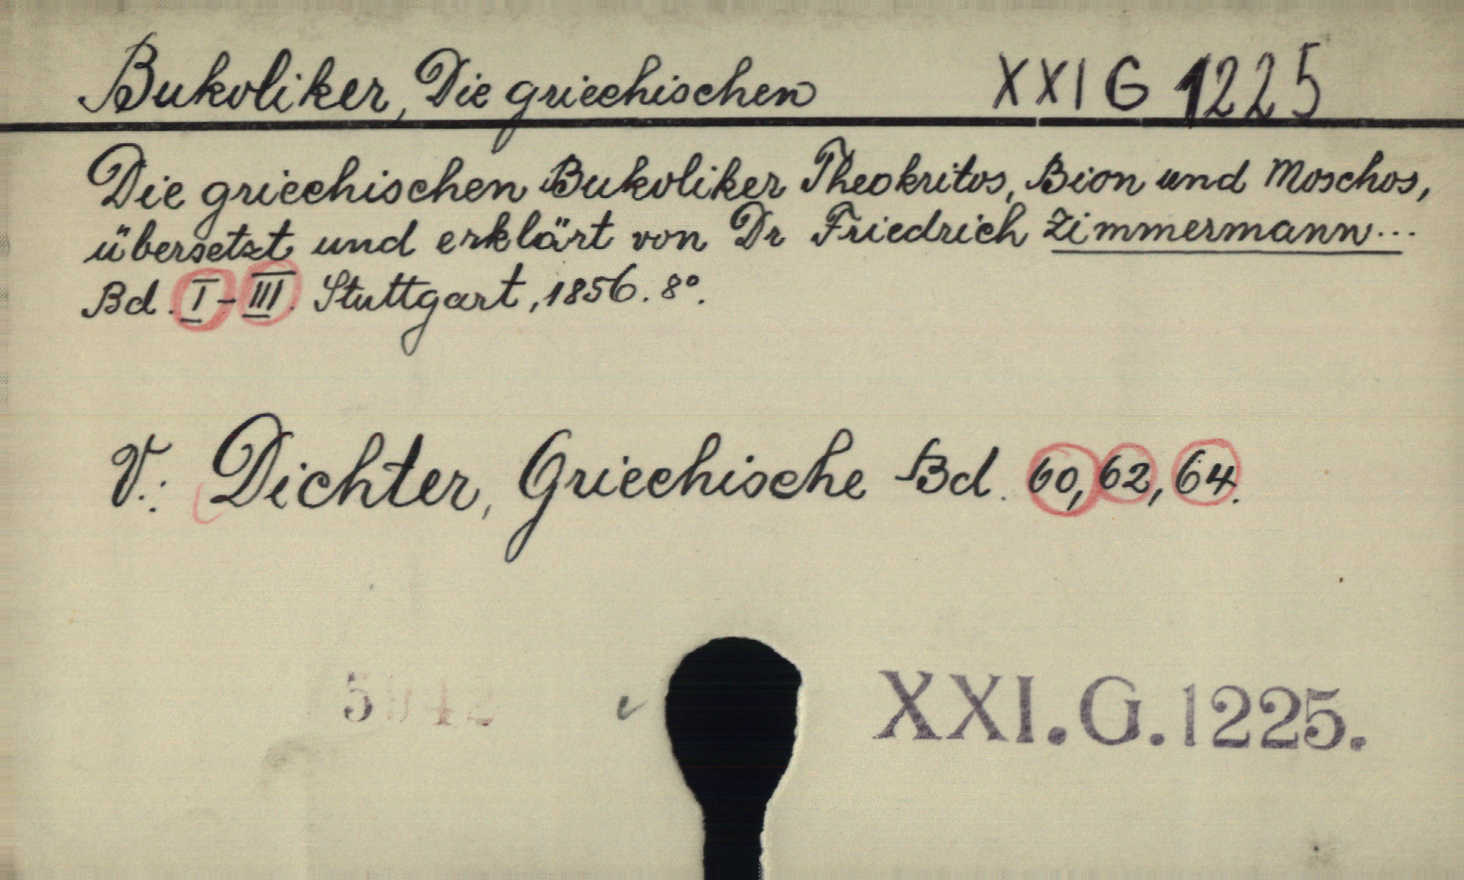 Bukoliker, Die griechischen XXI G 1225
Die griechischen Bukoliker Theokritos, Bion und Moschos,
übersetzt und erklärt von Dr Friedrich Zimmermann...
Bd. I-III. Stuttgart, 1856. 8°.
V.: Dichter, Griechische Bd. 60, 62, 64.
XXI.G.1225.